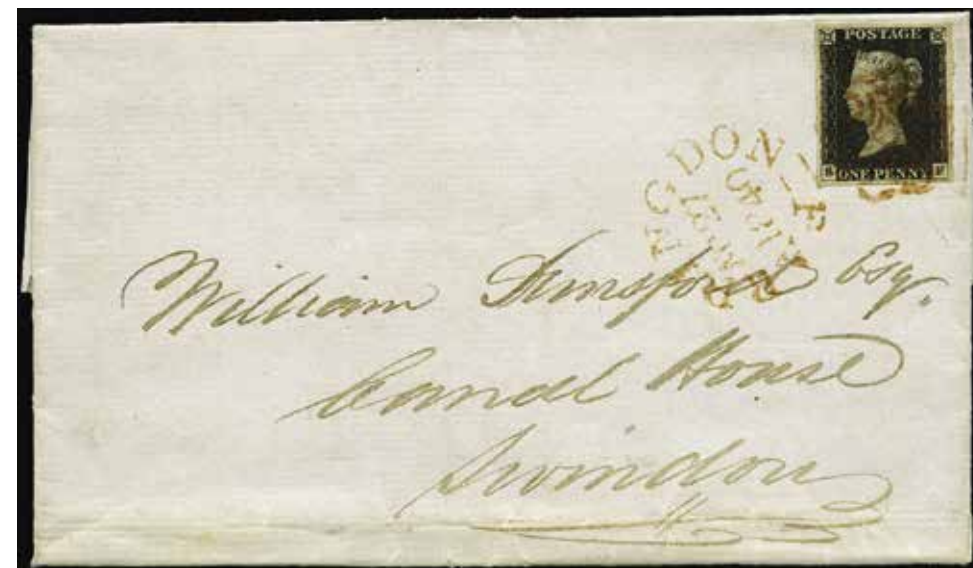 POSTAGE
ONE PENNY
William Dunsford Esqr.
Canal House
Swindon